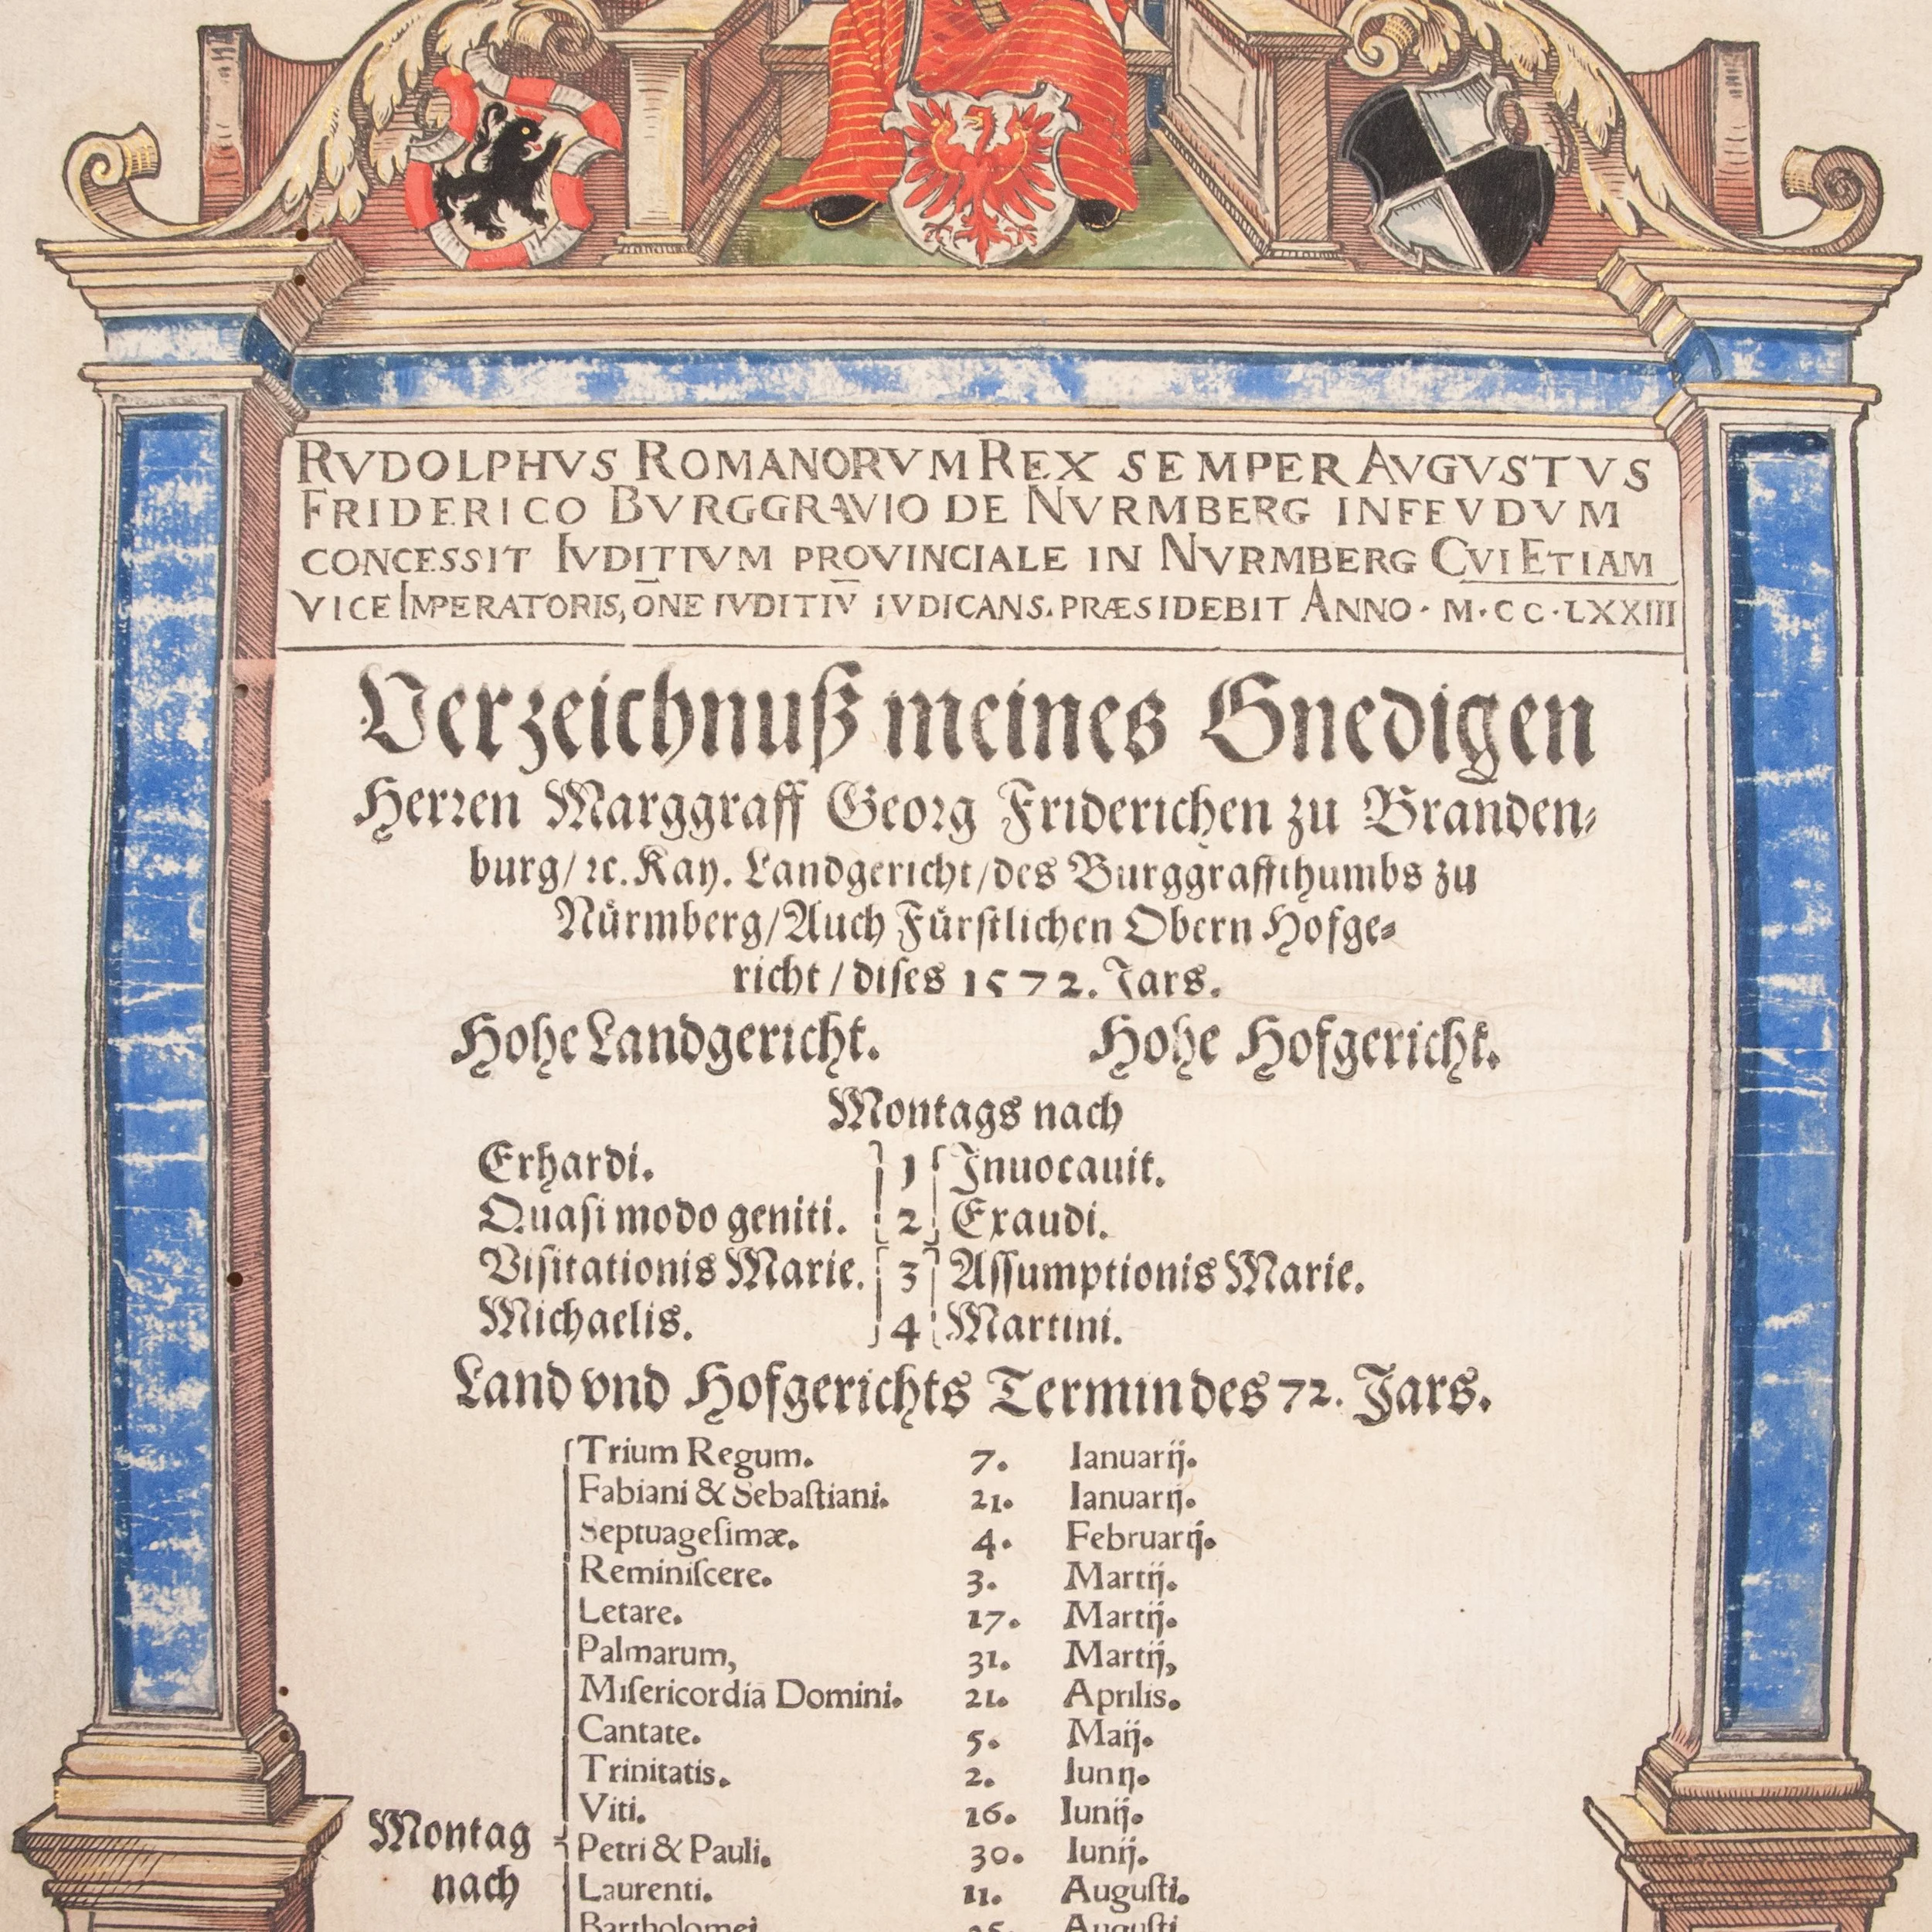 RVDOLPHVS ROMANORVM REX SEMPER AVGVSTVS
FRIDERICO BVRGGRAVIO DE NVRMBERG INFEVDVM
CONCESSIT IVDITIVM PROVINCIALE IN NVRMBERG CVI ETIAM
VICE IMPERATORIS, ŌNE IVDITIV̄ IVDICANS. PRÆSIDEBIT ANNO · M · CC · LXXIII
Verzeichnuß meines Gnedigen
Herren Marggraff Georg Friderichen zu Branden⸗
burg/ ꝛc. Kay. Landgericht/des Burggraffthumbs zu
Nürmberg/Auch Fürſtlichen Obern Hofge⸗
richt/diſes 1572. Jars.
Hohe Landgericht. Hohe Hofgericht.
Montags nach
Erhardi. 1 Inuocauit.
Quaſi modo geniti. 2 Exaudi.
Viſitationis Marie. 3 Aſſumptionis Marie.
Michaelis. 4 Martini.
Land vnd Hofgerichts Termin des 72. Jars.
Trium Regum. 7. Ianuarij.
Fabiani & Sebaſtiani. 21. Ianuarij.
Septuageſimæ. 4. Februarij.
Reminiſcere. 3. Martij.
Letare. 17. Martij.
Palmarum, 31. Martij,
Miſericordia Domini. 21. Aprilis.
Cantate. 5. Maij.
Trinitatis. 2. Iunij.
Viti. 16. Iunij.
Montag nach
Petri & Pauli. 30. Iunij.
Laurenti. 11. Auguſti.
Bartholomei. 25. Auguſti